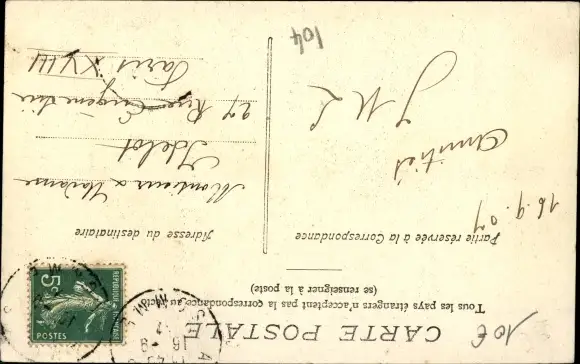 CARTE POSTALE
Tous les pays étrangers n'acceptent pas la correspondance au recto
(se renseigner à la poste)
Partie réservée à la Correspondance
Adresse du destinataire
16.9.07
Amitiés
J M L
Monsieur & Madame
Idelot
27 Rue Eugène Sue
Paris XVIII
104
10€
RÉPUBLIQUE FRANÇAISE
5c
POSTES